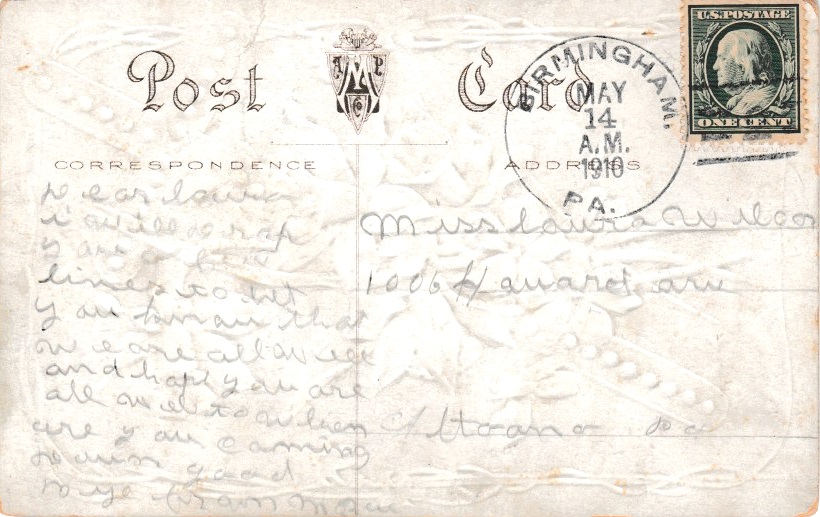 Post Card
A M P Co
U.S. POSTAGE
ONE CENT
BIRMINGHAM.
MAY
14
A.M.
1910
PA.
CORRESPONDENCE
ADDRESS
Dear laura
i will drop
you a few
lines to let
you know that
we are all well
and hope you are
all well to when
are you coming
down good
bye from
Miss laura Wilcox
1006 Howard ave
Altoona Pa